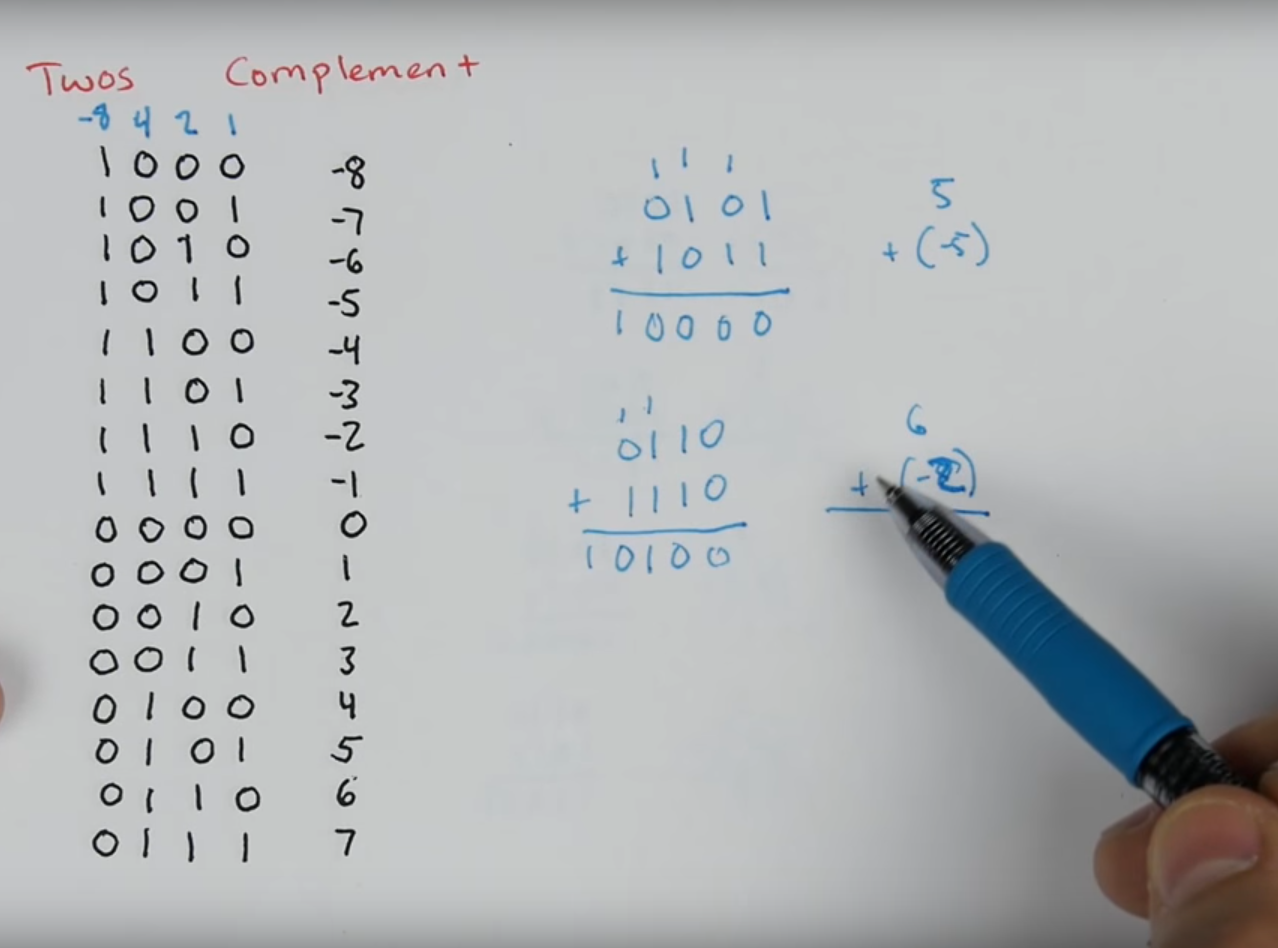 Twos Complement
-8 4 2 1
1 0 0 0 -8
1 0 0 1 -7
1 0 1 0 -6
1 0 1 1 -5
1 1 0 0 -4
1 1 0 1 -3
1 1 1 0 -2
1 1 1 1 -1
0 0 0 0 0
0 0 0 1 1
0 0 1 0 2
0 0 1 1 3
0 1 0 0 4
0 1 0 1 5
0 1 1 0 6
0 1 1 1 7
1 1 1
0101
+ 1011
10000
5
+ (-5)
1 1
0110
+ 1110
10100
6
+ (-2)